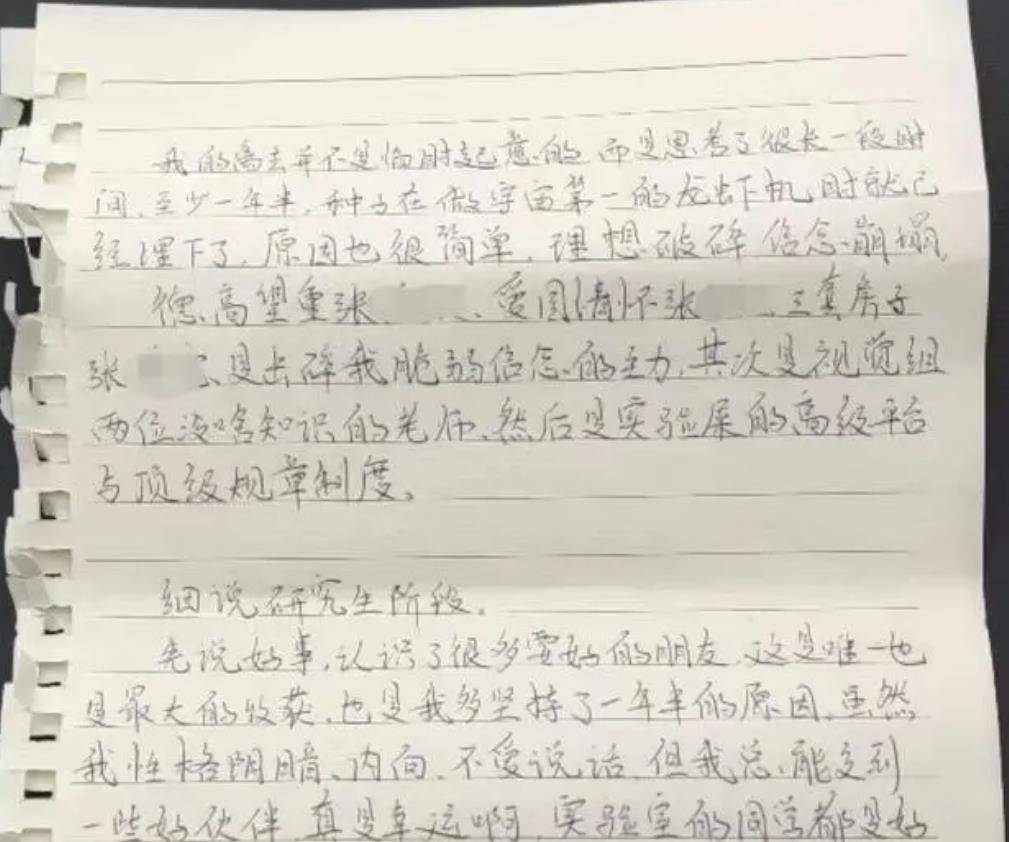 我的离去并不是临时起意的,而是思考了很长一段时
间,至少一年半,种子在做宇宙第一的龙虾机时就已
经埋下了,原因也很简单,理想破碎 信念崩塌,
德高望重张 、爱国情怀张 、三套房子
张 是击碎我脆弱信念的主力,其次是视觉组
两位没啥知识的老师,然后是实验属的高级平台
与顶级规章制度。
细说研究生阶段,
先说好事,认识了很多要好的朋友,这是唯一也
是最大的收获,也是我多坚持了一年半的原因,虽然
我性格阴暗、内向、不爱说话,但我总能交到
一些好伙伴,真是幸运啊,实验室的同学都是好